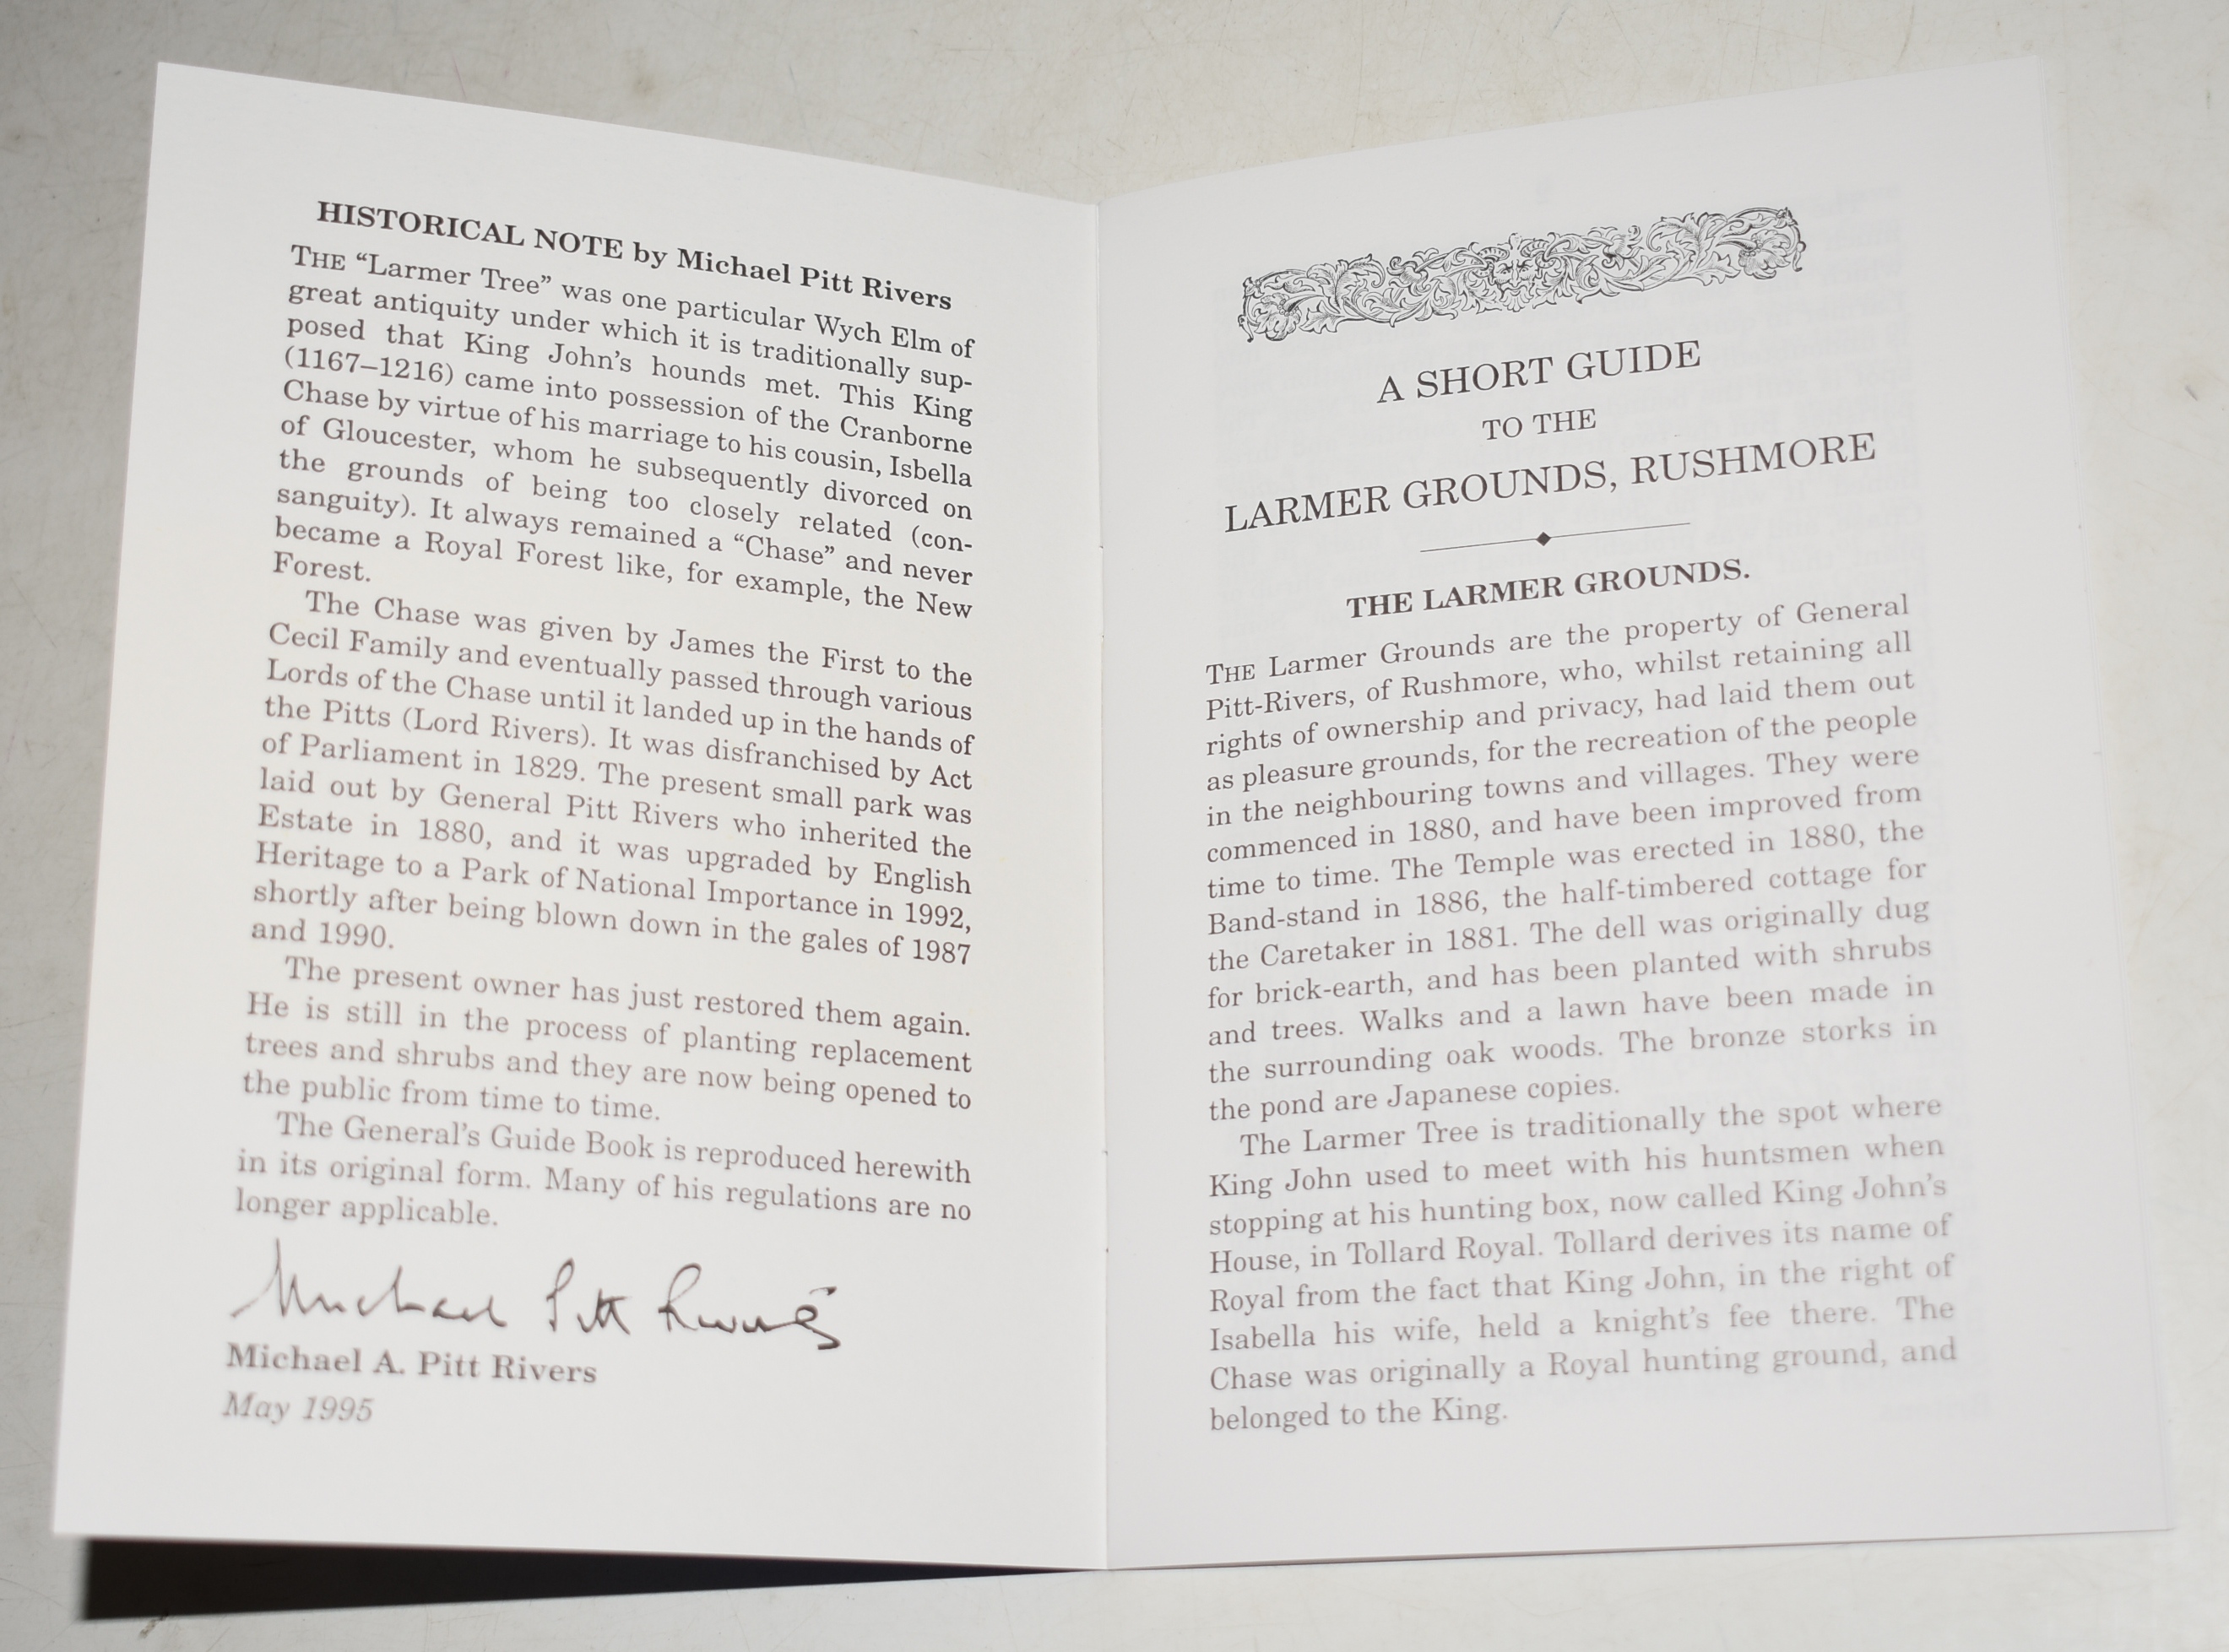 HISTORICAL NOTE by Michael Pitt Rivers
THE “Larmer Tree” was one particular Wych Elm of
great antiquity under which it is traditionally sup-
posed that King John’s hounds met. This King
(1167–1216) came into possession of the Cranborne
Chase by virtue of his marriage to his cousin, Isbella
of Gloucester, whom he subsequently divorced on
the grounds of being too closely related (con-
sanguity). It always remained a “Chase” and never
became a Royal Forest like, for example, the New
Forest.
The Chase was given by James the First to the
Cecil Family and eventually passed through various
Lords of the Chase until it landed up in the hands of
the Pitts (Lord Rivers). It was disfranchised by Act
of Parliament in 1829. The present small park was
laid out by General Pitt Rivers who inherited the
Estate in 1880, and it was upgraded by English
Heritage to a Park of National Importance in 1992,
shortly after being blown down in the gales of 1987
and 1990.
The present owner has just restored them again.
He is still in the process of planting replacement
trees and shrubs and they are now being opened to
the public from time to time.
The General’s Guide Book is reproduced herewith
in its original form. Many of his regulations are no
longer applicable.
Michael Pitt Rivers
Michael A. Pitt Rivers
May 1995
A SHORT GUIDE
TO THE
LARMER GROUNDS, RUSHMORE
THE LARMER GROUNDS.
THE Larmer Grounds are the property of General
Pitt-Rivers, of Rushmore, who, whilst retaining all
rights of ownership and privacy, had laid them out
as pleasure grounds, for the recreation of the people
in the neighbouring towns and villages. They were
commenced in 1880, and have been improved from
time to time. The Temple was erected in 1880, the
Band-stand in 1886, the half-timbered cottage for
the Caretaker in 1881. The dell was originally dug
for brick-earth, and has been planted with shrubs
and trees. Walks and a lawn have been made in
the surrounding oak woods. The bronze storks in
the pond are Japanese copies.
The Larmer Tree is traditionally the spot where
King John used to meet with his huntsmen when
stopping at his hunting box, now called King John’s
House, in Tollard Royal. Tollard derives its name of
Royal from the fact that King John, in the right of
Isabella his wife, held a knight’s fee there. The
Chase was originally a Royal hunting ground, and
belonged to the King.